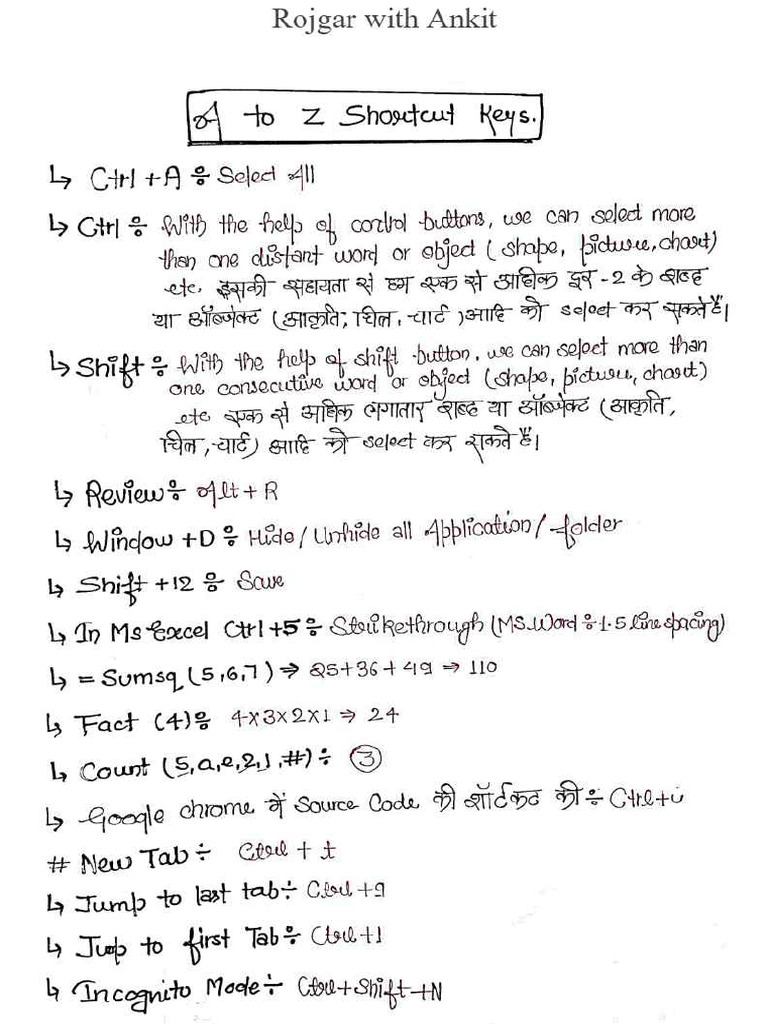 Rojgar with Ankit
A to Z Shortcut Keys.
↳ Ctrl + A ÷ Select All
↳ Ctrl ÷ With the help of control buttons, we can select more
than one distant word or object ( shape, picture, chart)
etc इसकी सहायता से हम एक से अधिक दूर -2 के शब्द
या ऑब्जेक्ट (आकृति, चित्र, चार्ट ) आदि को select कर सकते हैं।
↳ Shift ÷ With the help of shift button, we can select more than
one consecutive word or object (shape, picture, chart)
etc एक से अधिक लगातार शब्द या ऑब्जेक्ट (आकृति,
चित्र, चार्ट) आदि को select कर सकते हैं।
↳ Review ÷ Alt + R
↳ Window + D ÷ Hide / Unhide all Application / folder
↳ Shift + 12 ÷ Save
↳ In Ms Excel Ctrl + 5 ÷ Strikethrough (MS. Word ÷ 1.5 line spacing)
↳ = Sumsq (5,6,7) ⇒ 25 + 36 + 49 ⇒ 110
↳ Fact (4) ÷ 4 × 3 × 2 × 1 ⇒ 24
↳ Count (5, a, e, 2, 1, #) ÷ 3
↳ Google chrome में Source Code की शॉर्टकट की ÷ Ctrl + u
# New Tab ÷ Ctrl + t
↳ Jump to last tab ÷ Ctrl + 9
↳ Jup to first Tab ÷ Ctrl + 1
↳ Incognito Mode ÷ Ctrl + Shift + N